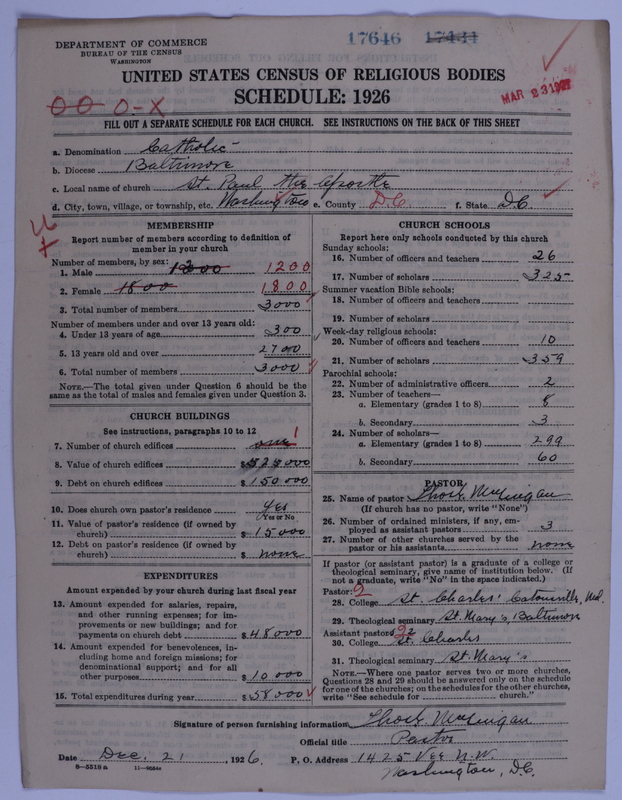 17646 17434
DEPARTMENT OF COMMERCE
BUREAU OF THE CENSUS
WASHINGTON
UNITED STATES CENSUS OF RELIGIOUS BODIES
SCHEDULE: 1926
MAR 23 1927
0 0 0-X
FILL OUT A SEPARATE SCHEDULE FOR EACH CHURCH. SEE INSTRUCTIONS ON THE BACK OF THIS SHEET
a. Denomination Catholic
b. Diocese Baltimore
c. Local name of church St. Paul the Apostle
d. City, town, village, or township, etc. Washington e. County D.C. f. State D.C.
MEMBERSHIP
Report number of members according to definition of
member in your church
Number of members, by sex:
1. Male 1200
2. Female 1800 1800
3. Total number of members 3000
Number of members under and over 13 years old:
4. Under 13 years of age 300
5. 13 years old and over 2700
6. Total number of members 3000
NOTE.—The total given under Question 6 should be
same as the total of males and females given under Question 3.
CHURCH BUILDINGS
See instructions, paragraphs 10 to 12
7. Number of church edifices one 1
8. Value of church edifices $525000
9. Debt on church edifices $150000
10. Does church own pastor's residence Yes
Yes or No
11. Value of pastor's residence (if owned by
church) $15000
12. Debt on pastor's residence (if owned by
church) $ none
EXPENDITURES
Amount expended by your church during last fiscal year
13. Amount expended for salaries, repairs,
and other running expenses; for im-
provements or new buildings; and for
payments on church debt $48000
14. Amount expended for benevolences, in-
cluding home and foreign missions; for
denominational support; and for all
other purposes $10000
15. Total expenditures during year $58000
CHURCH SCHOOLS
Report here only schools conducted by this church
Sunday schools:
16. Number of officers and teachers 26
17. Number of scholars 325
Summer vacation Bible schools:
18. Number of officers and teachers
19. Number of scholars
Week-day religious schools:
20. Number of officers and teachers 10
21. Number of scholars 359
Parochial schools:
22. Number of administrative officers 2
23. Number of teachers—
a. Elementary (grades 1 to 8) 8
b. Secondary 3
24. Number of scholars—
a. Elementary (grades 1 to 8) 299
b. Secondary 60
PASTOR
25. Name of pastor
(If church has no pastor, write "None")
26. Number of ordained ministers, if any, em-
ployed as assistant pastors 3
27. Number of other churches served by the
pastor or his assistants none
If pastor (or assistant pastor) is a graduate of a college or
theological seminary, give name of institution below. (If
not a graduate, write "No" in the space indicated.)
Pastor: 2
28. College St. Charles' Catonsville, Md.
29. Theological seminary St. Mary's Baltimore
Assistant pastor: 2
30. College St. Charles
31. Theological seminary St. Mary's
NOTE.—Where one pastor serves two or more churches,
Questions 28 and 29 should be answered only on the schedule
for one of the churches; on the schedules for the other churches,
write "See schedule for church."
Signature of person furnishing information
Official title Pastor
Date Dec. 21, 1926. P. O. Address 1425 Vee N.W.
Washington, D.C.